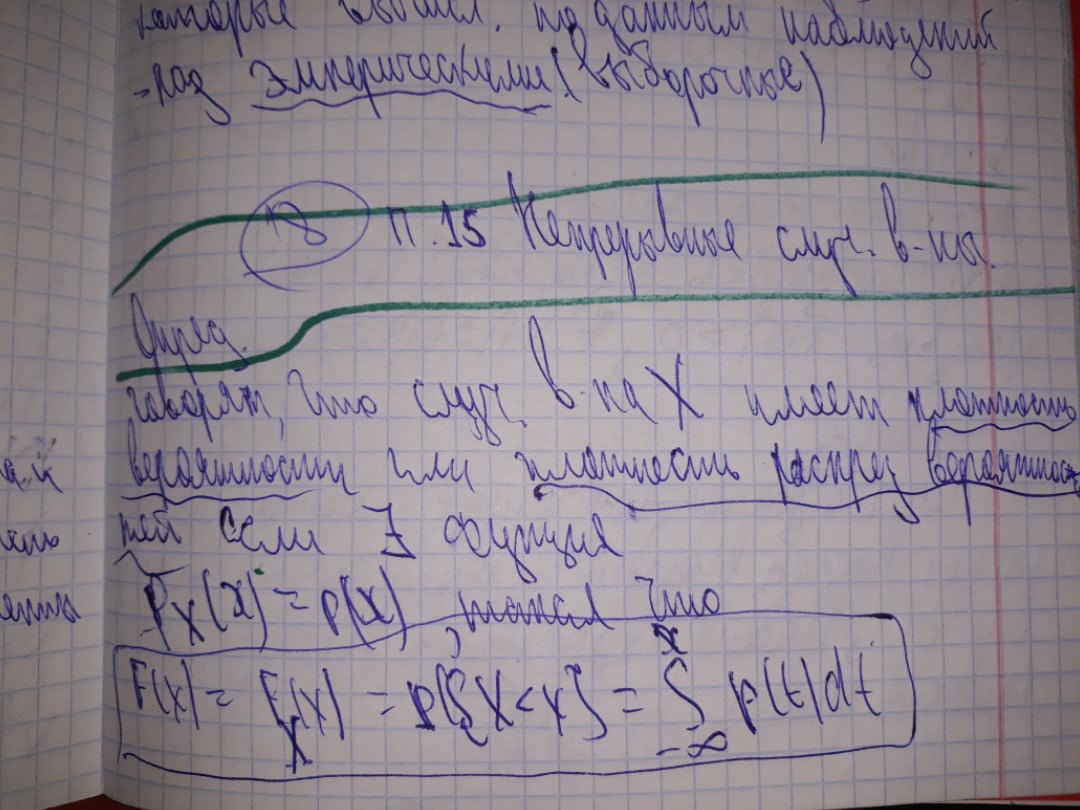 которые вычисл. по данным наблюдений
-наз эмперическими (выборочные)
18 п.15 Непрерывные случ. в-ны.
Опред.
говорят, что случ. в-на X имеет плотность
вероятности или плотность распред вероятнос
тей если ∃ функция
P_X(x) = p(x), такая что
F(x) = F_X(x) = P{X<x} = ∫_{-∞}^{x} p(t)dt